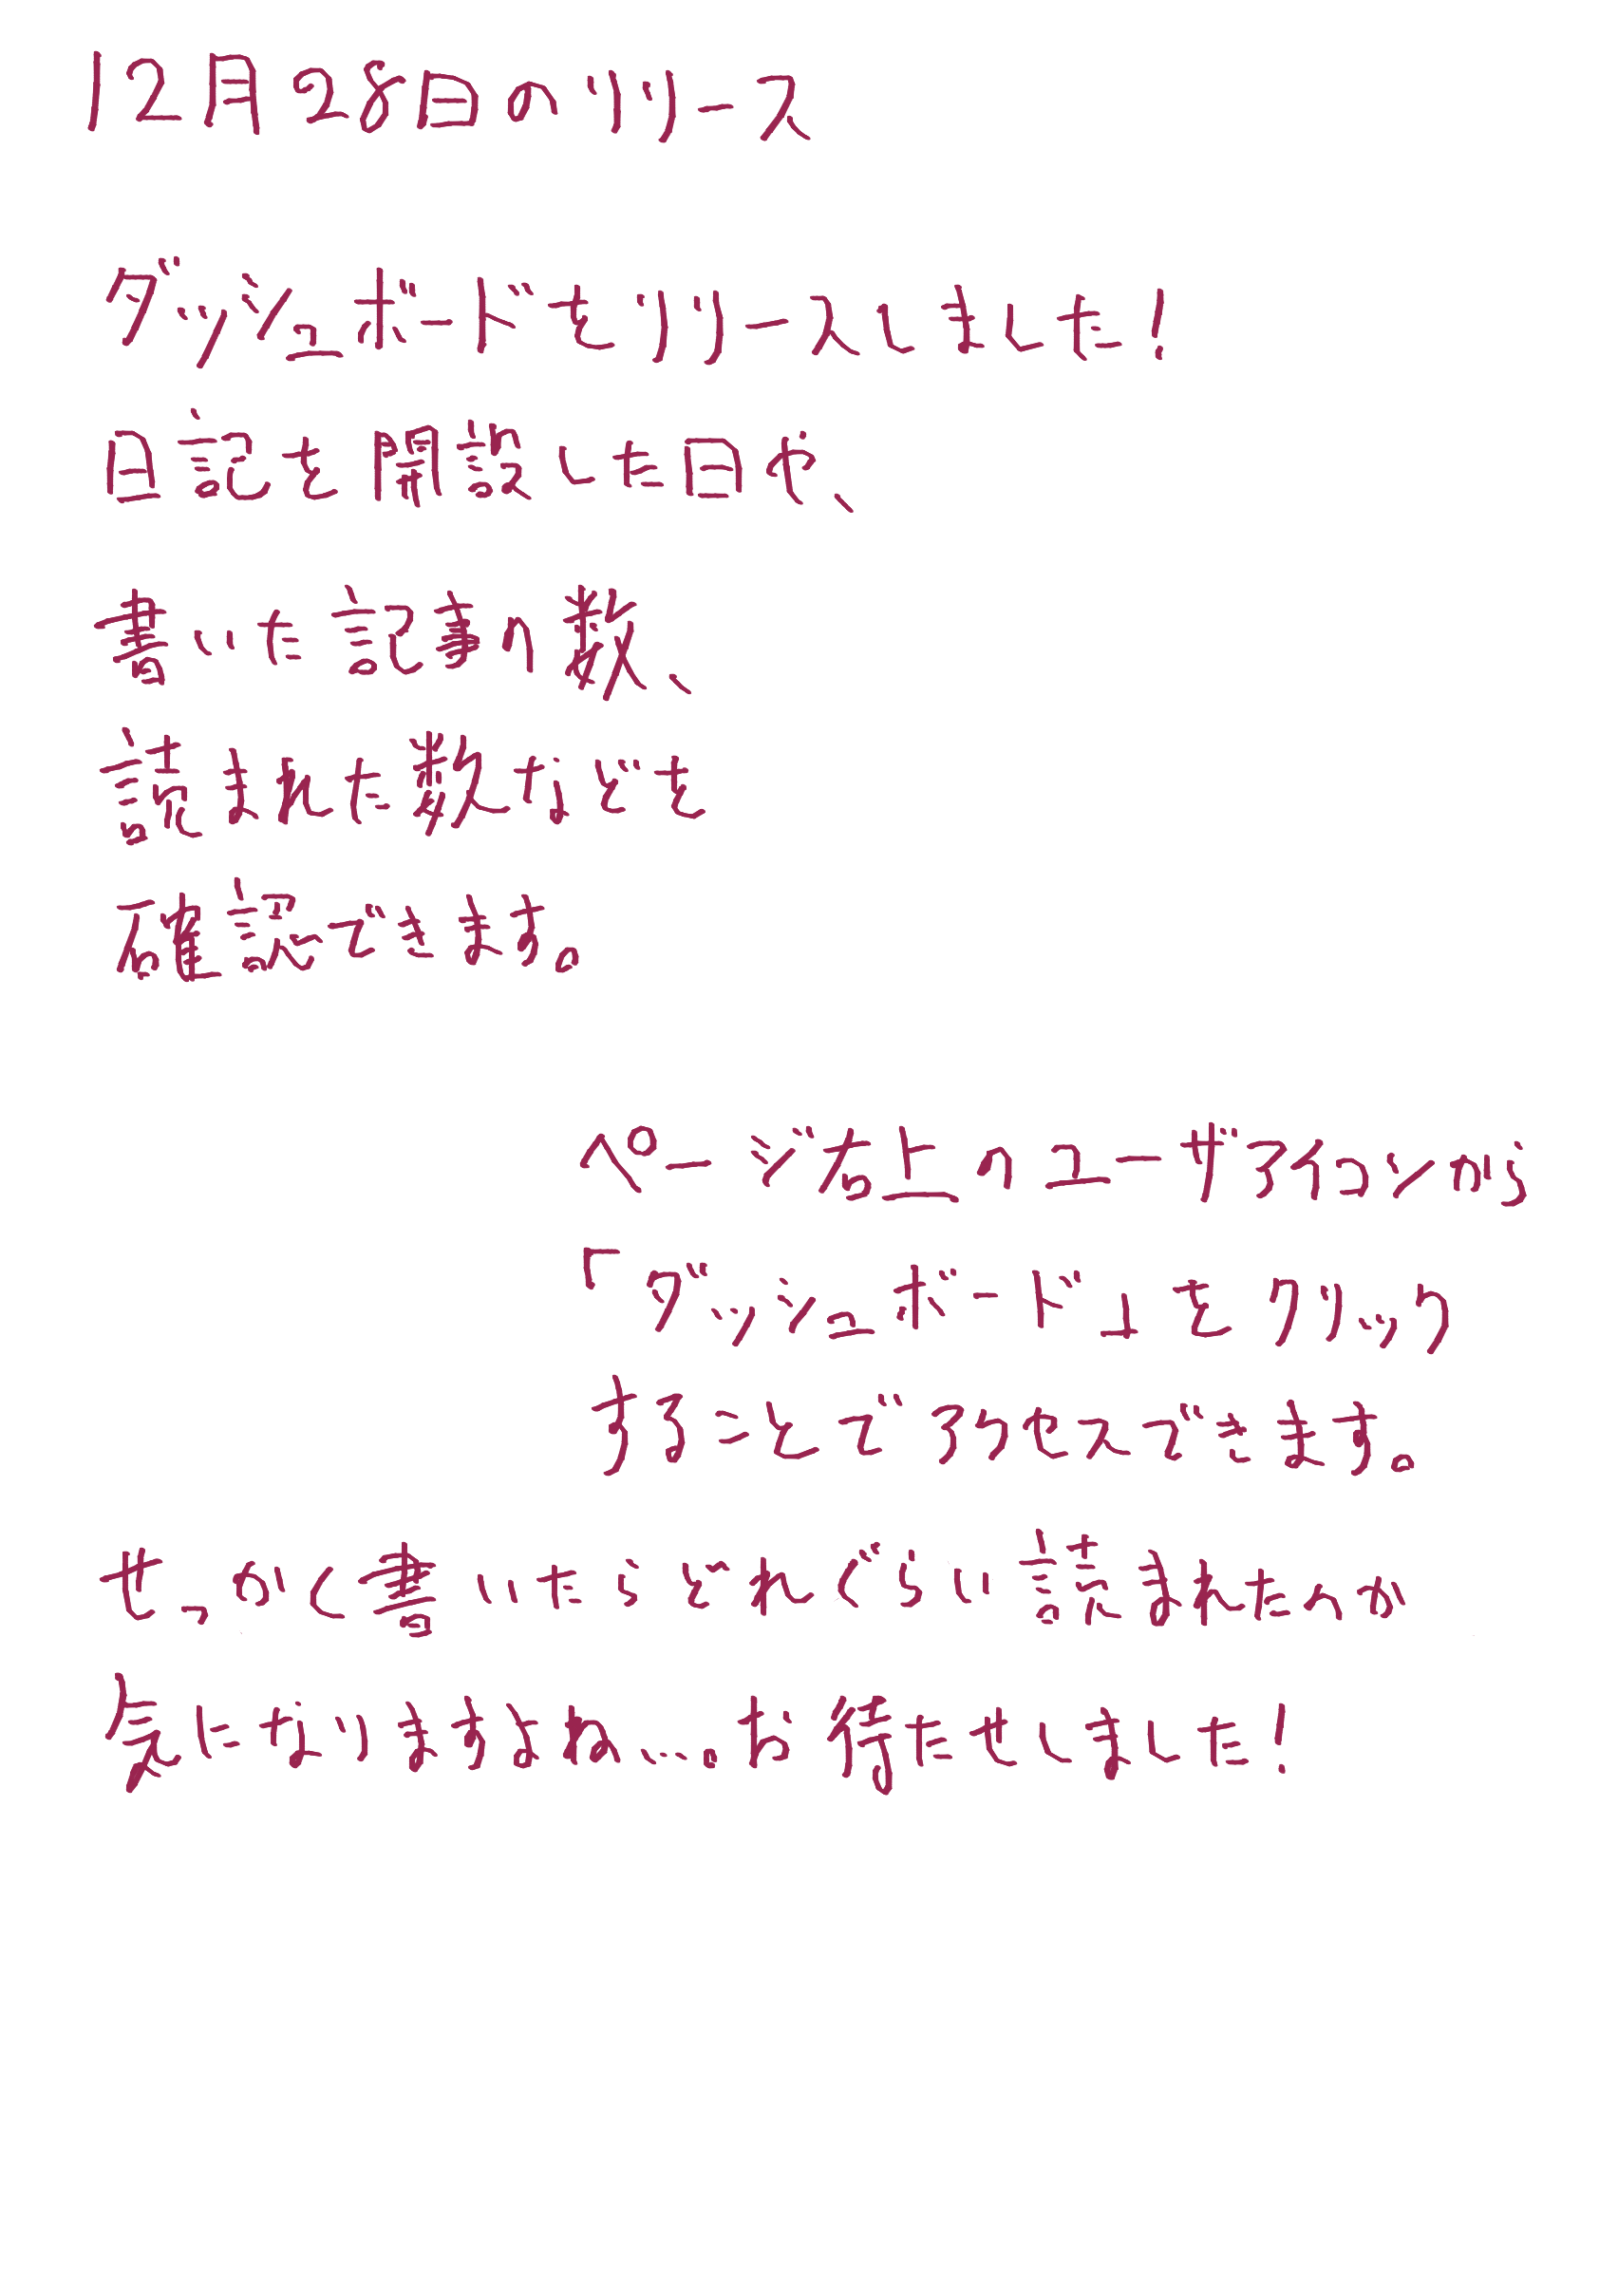 12月28日のリリース
ダッシュボードをリリースしました!
日記を開設した日や、
書いた記事の数、
読まれた数なども
確認できます。
ページ右上のユーザアイコンから
「ダッシュボード」をクリック
することでアクセスできます。
せっかく書いたらどれぐらい読まれたのか
気になりますよね…。お待たせしました!